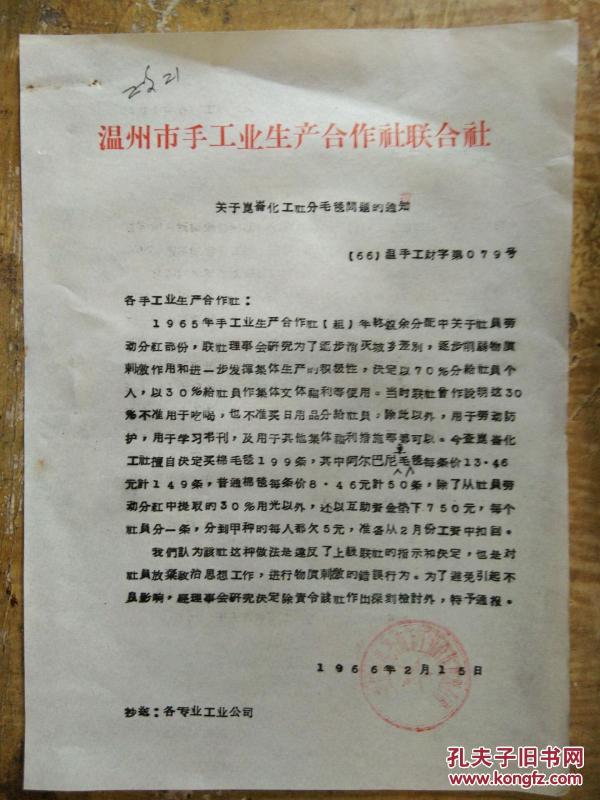 温州市手工业生产合作社联合社
关于崑崙化工社分毛毯問題的通知
〔66〕温手工財字第079号
各手工业生产合作社：
1965年手工业生产合作社〔組〕年終盈余分配中关于社員劳
动分紅部份，联社理事会研究为了逐步消灭城乡差别，逐步削弱物质
刺激作用和进一步发揮集体生产的积极性，决定以70％分給社員个
人，以30％給社員作集体文体福利等使用。当时联社曾作説明这30
％不准用于吃喝，也不准买日用品分給社員；除此以外，用于劳动防
护，用于学习书刊，及用于其他集体福利措施等都可以。今查崑崙化
工社擅自决定买棉毛毯199条，其中阿尔巴尼亚毛毯每条价13·46
元計149条，普通棉毯每条价8·46元計50条，除了从社員劳
动分紅中提取的30％用光以外，还以互助资金垫下750元，每个
社員分一条，分到甲种的每人都欠5元，准备从2月份工資中扣回。
我們认为該社这种做法是違反了上級联社的指示和决定，也是对
社員放棄政治思想工作，进行物质刺激的錯誤行为。为了避免引起不
良影响，經理事会研究决定除責令該社作出深刻檢討外，特予通报。
1966年2月15日
抄送：各专业工业公司
孔夫子旧书网
www.kongfz.com